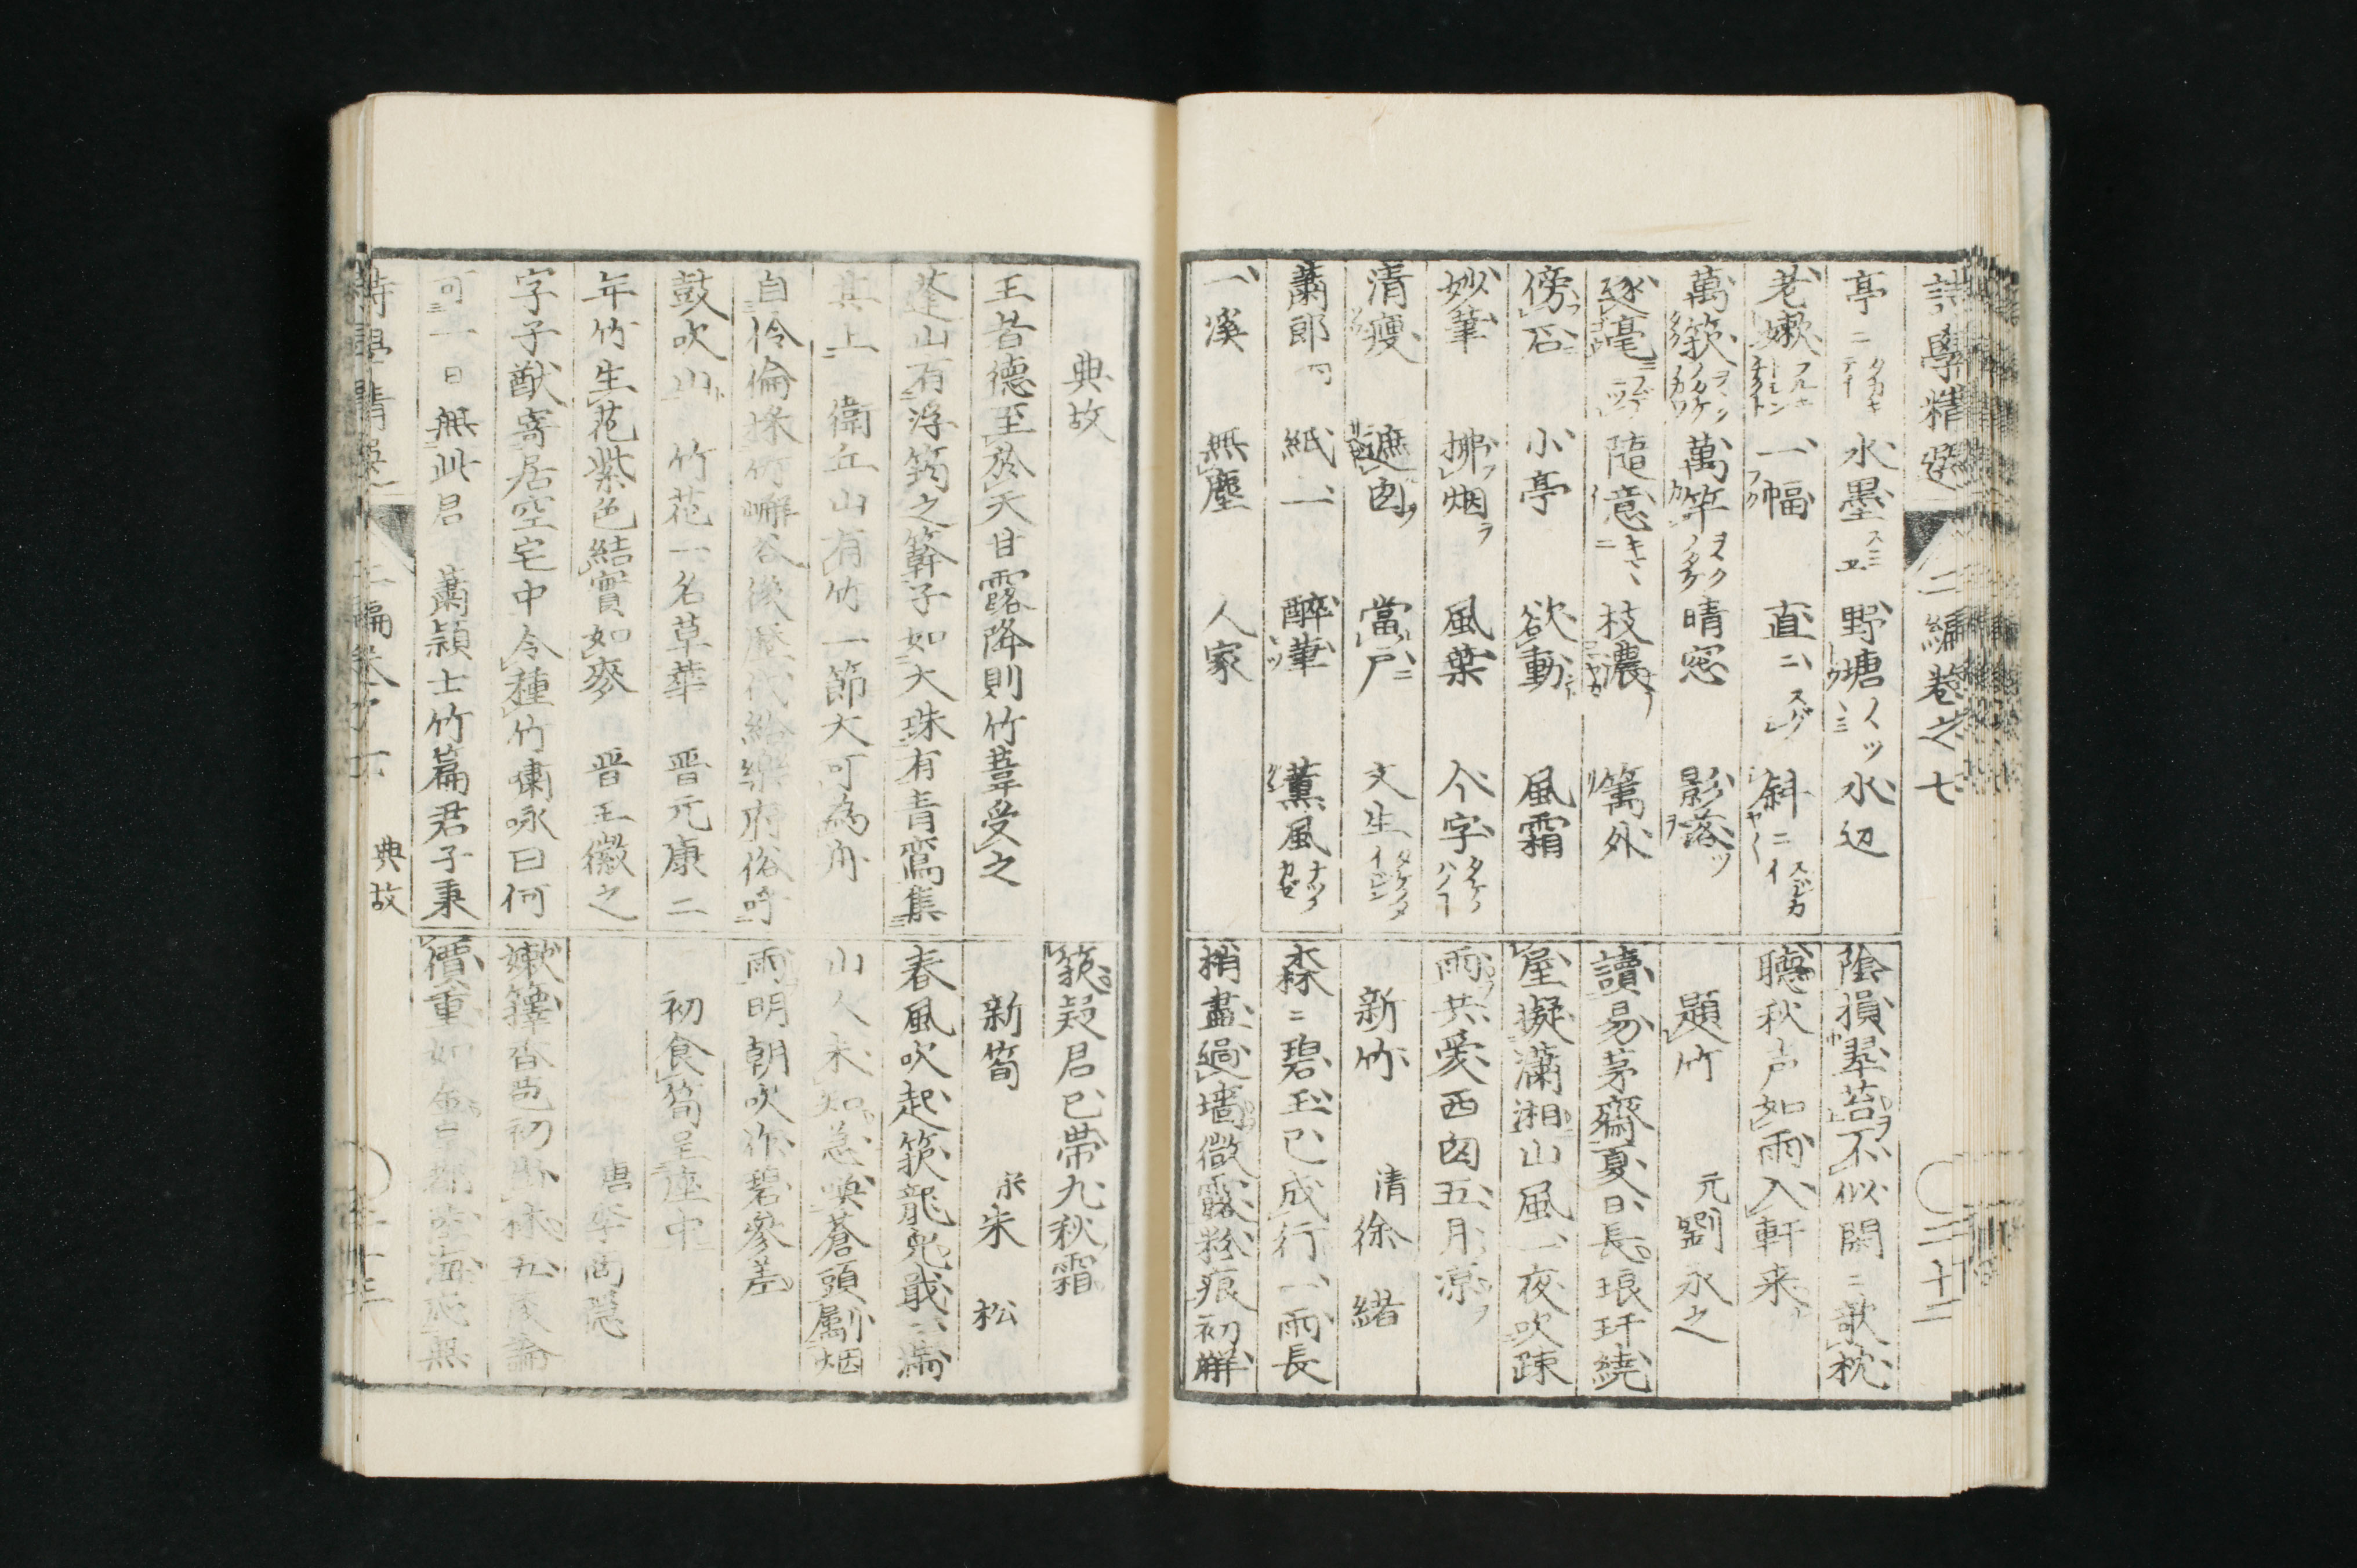 詩學精選 二編卷之七 二十二
亭ニ 水墨 野塘 水辺
老嫩 一幅 直ニ 斜ニ
萬䈥 萬竿 晴窓 影落
逐亳 隨意 枝濃 篱外
傍石 小亭 欲動 風霜
妙筆 拂烟 風葉 个字
清痩 遮囱 當戸 文生
蕭郎 紙一 醉筆 薫風
一溪 無塵 人家
陰損翠苔不似閑ニ欹枕
聽秋声如雨入軒来
題竹 元劉永之
讀易茅齋夏日長琅玕繞
屋擬瀟湘山風一夜吹疎
雨共愛西囱五月凉
新竹 清徐緒
森ニ碧玉已成行一雨長
梢盡過墻微露粉痕初觧
典故
王昔德至於天甘露降則竹葦受之
蓬山有浮筠之簳子如大珠有青鸞集
其上 衛丘山有竹一節大可為舟
自伶倫採竹嶰谷後歴代給樂府俗呼
鼓吹山 竹花一名草華 晋元康二
年竹生花紫色結實如麥 晋王徽之
字子猷寄居空宅中令種竹嘯咏曰何
可一日無此君 蕭頴士竹篇君子秉
籜疑君已帯九秋霜
新筍 宋朱松
春風吹起籜龍児戢ニ滿
山人未知急喚蒼頭劚烟
雨明朝吹作碧參差
初食筍呈座中
唐李商隠
嫩籜香苞初出林五陵論
價重如金皇都陸海應無
典故